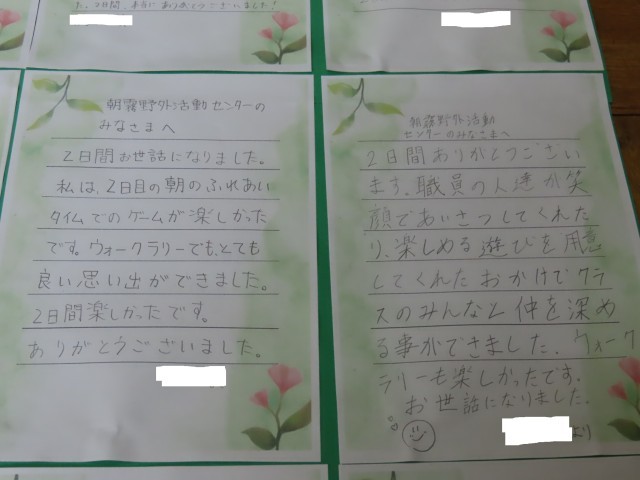 た。2日間、本当にありがとうございました!
朝霧野外活動センターの
みなさまへ
2日間お世話になりました。
私は、2日目の朝のふれあい
タイムでのゲームが楽しかった
です。ウォークラリーでも、とても
良い思い出ができました。
2日間楽しかったです。
ありがとうございました。
朝霧野外活動
センターのみなさまへ
2日間ありがとうござい
ます。職員の人達が笑
顔であいさつしてくれた
り、楽しめる遊びを用意
してくれたおかげでクラ
スのみんなと仲を深め
る事ができました。ウォーク
ラリーも楽しかったです。
お世話になりました。
より